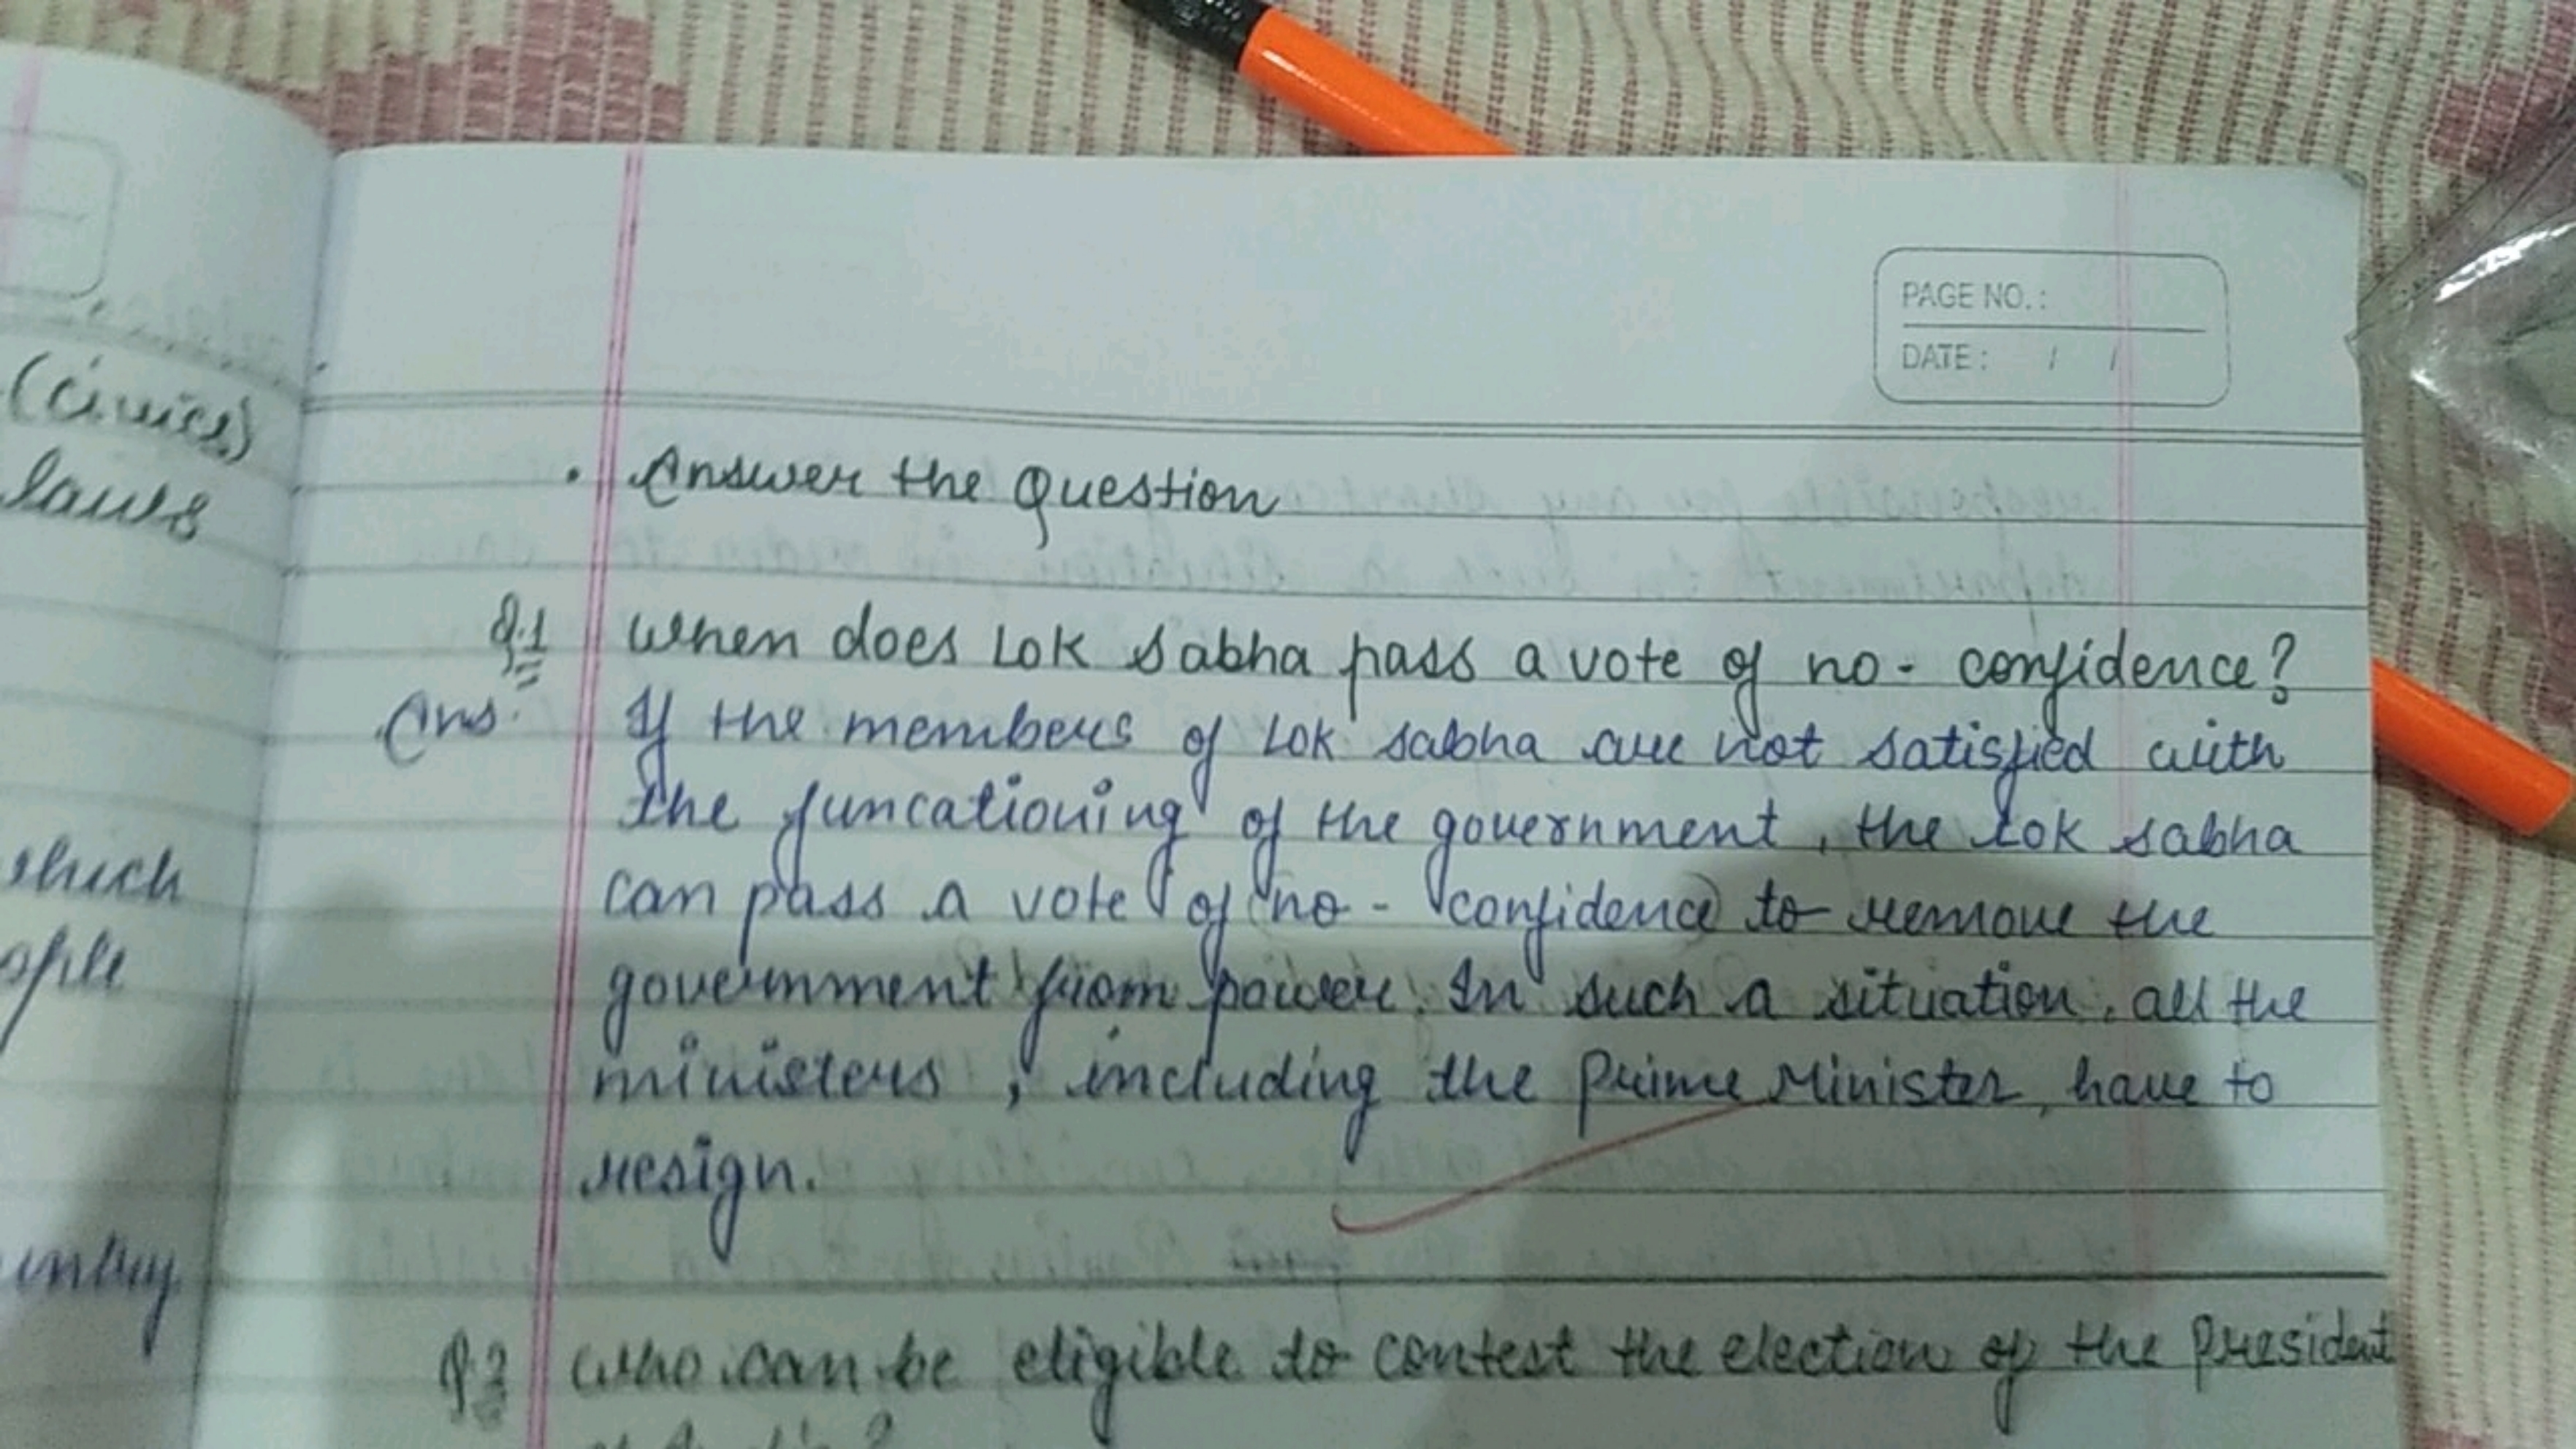 (civics)
laws
which
PAGE NO.:
DATE: / /
. Answer the Question
Q.1 When does Lok Sabha pass a vote of no - confidence?
Ans. If the members of Lok sabha are not satisfied with
the funcationing of the government, the Lok sabha
can pass a vote of no - confidence to remove the
government from power. In such a situation, all the
ministers, including the Prime Minister, have to
resign.
Q.2 Who can be eligible to contest the election of the President